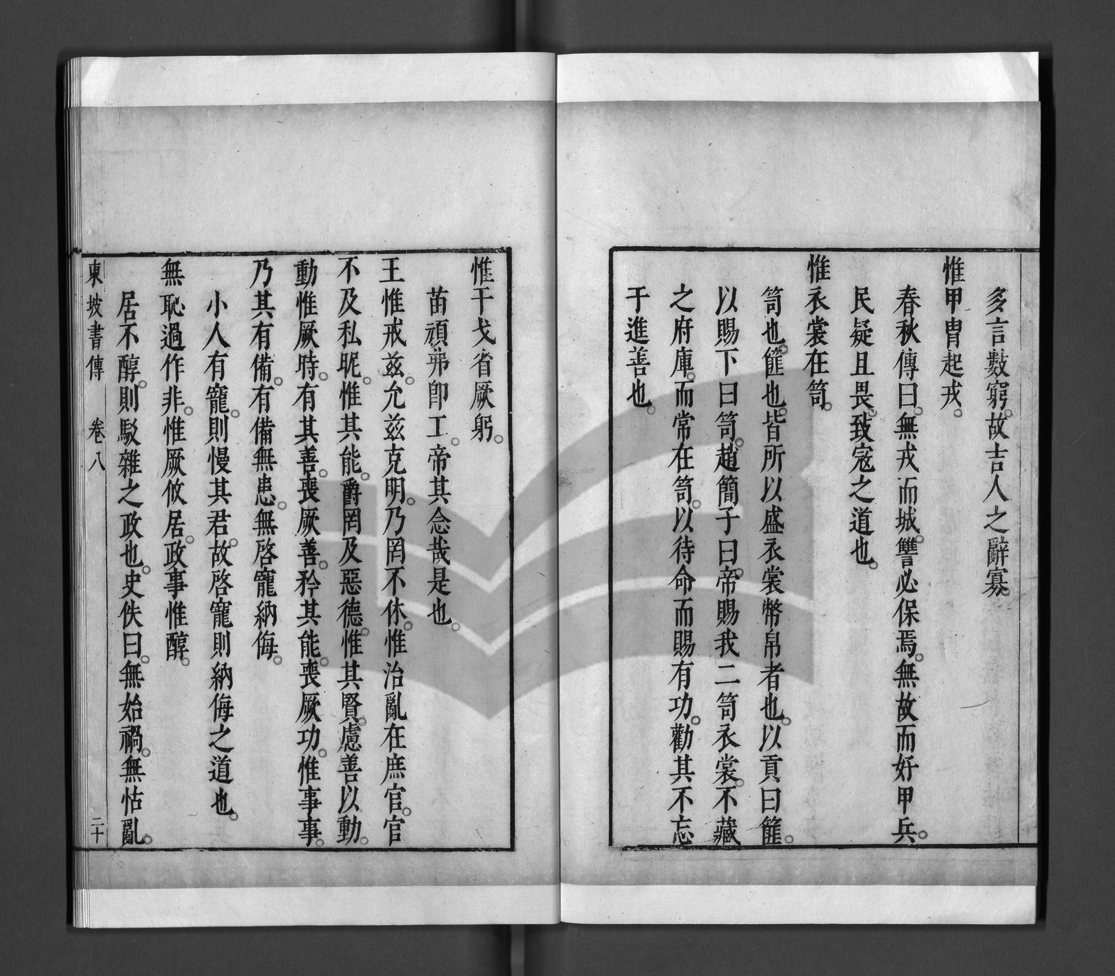 多言數窮。故吉人之辭寡。
惟甲冑起戎。
春秋傳曰。無戎而城。讐必保焉。無故而好甲兵。
民疑且畏。致寇之道也。
惟衣裳在笥。
笥也。篚也。皆所以盛衣裳幣帛者也。以貢曰篚。
以賜下曰笥。趙簡子曰。帝賜我二笥衣裳。不藏
之府庫。而常在笥。以待命而賜有功。勸其不忘
于進善也。
惟干戈省厥躬。
苗頑弗卽工。帝其念哉是也。
王惟戒兹。允兹克明。乃罔不休。惟治亂在庶官。官
不及私昵。惟其能。爵罔及惡德。惟其賢。慮善以動。
動惟厥時。有其善。喪厥善。矜其能。喪厥功。惟事事。
乃其有備。有備無患。無啓寵納侮。
小人有寵。則慢其君。故啓寵則納侮之道也。
無恥過作非。惟厥攸居。政事惟醇。
居不醇。則駁雜之政也。史佚曰。無始禍。無怙亂。
東坡書傳 卷八 二十